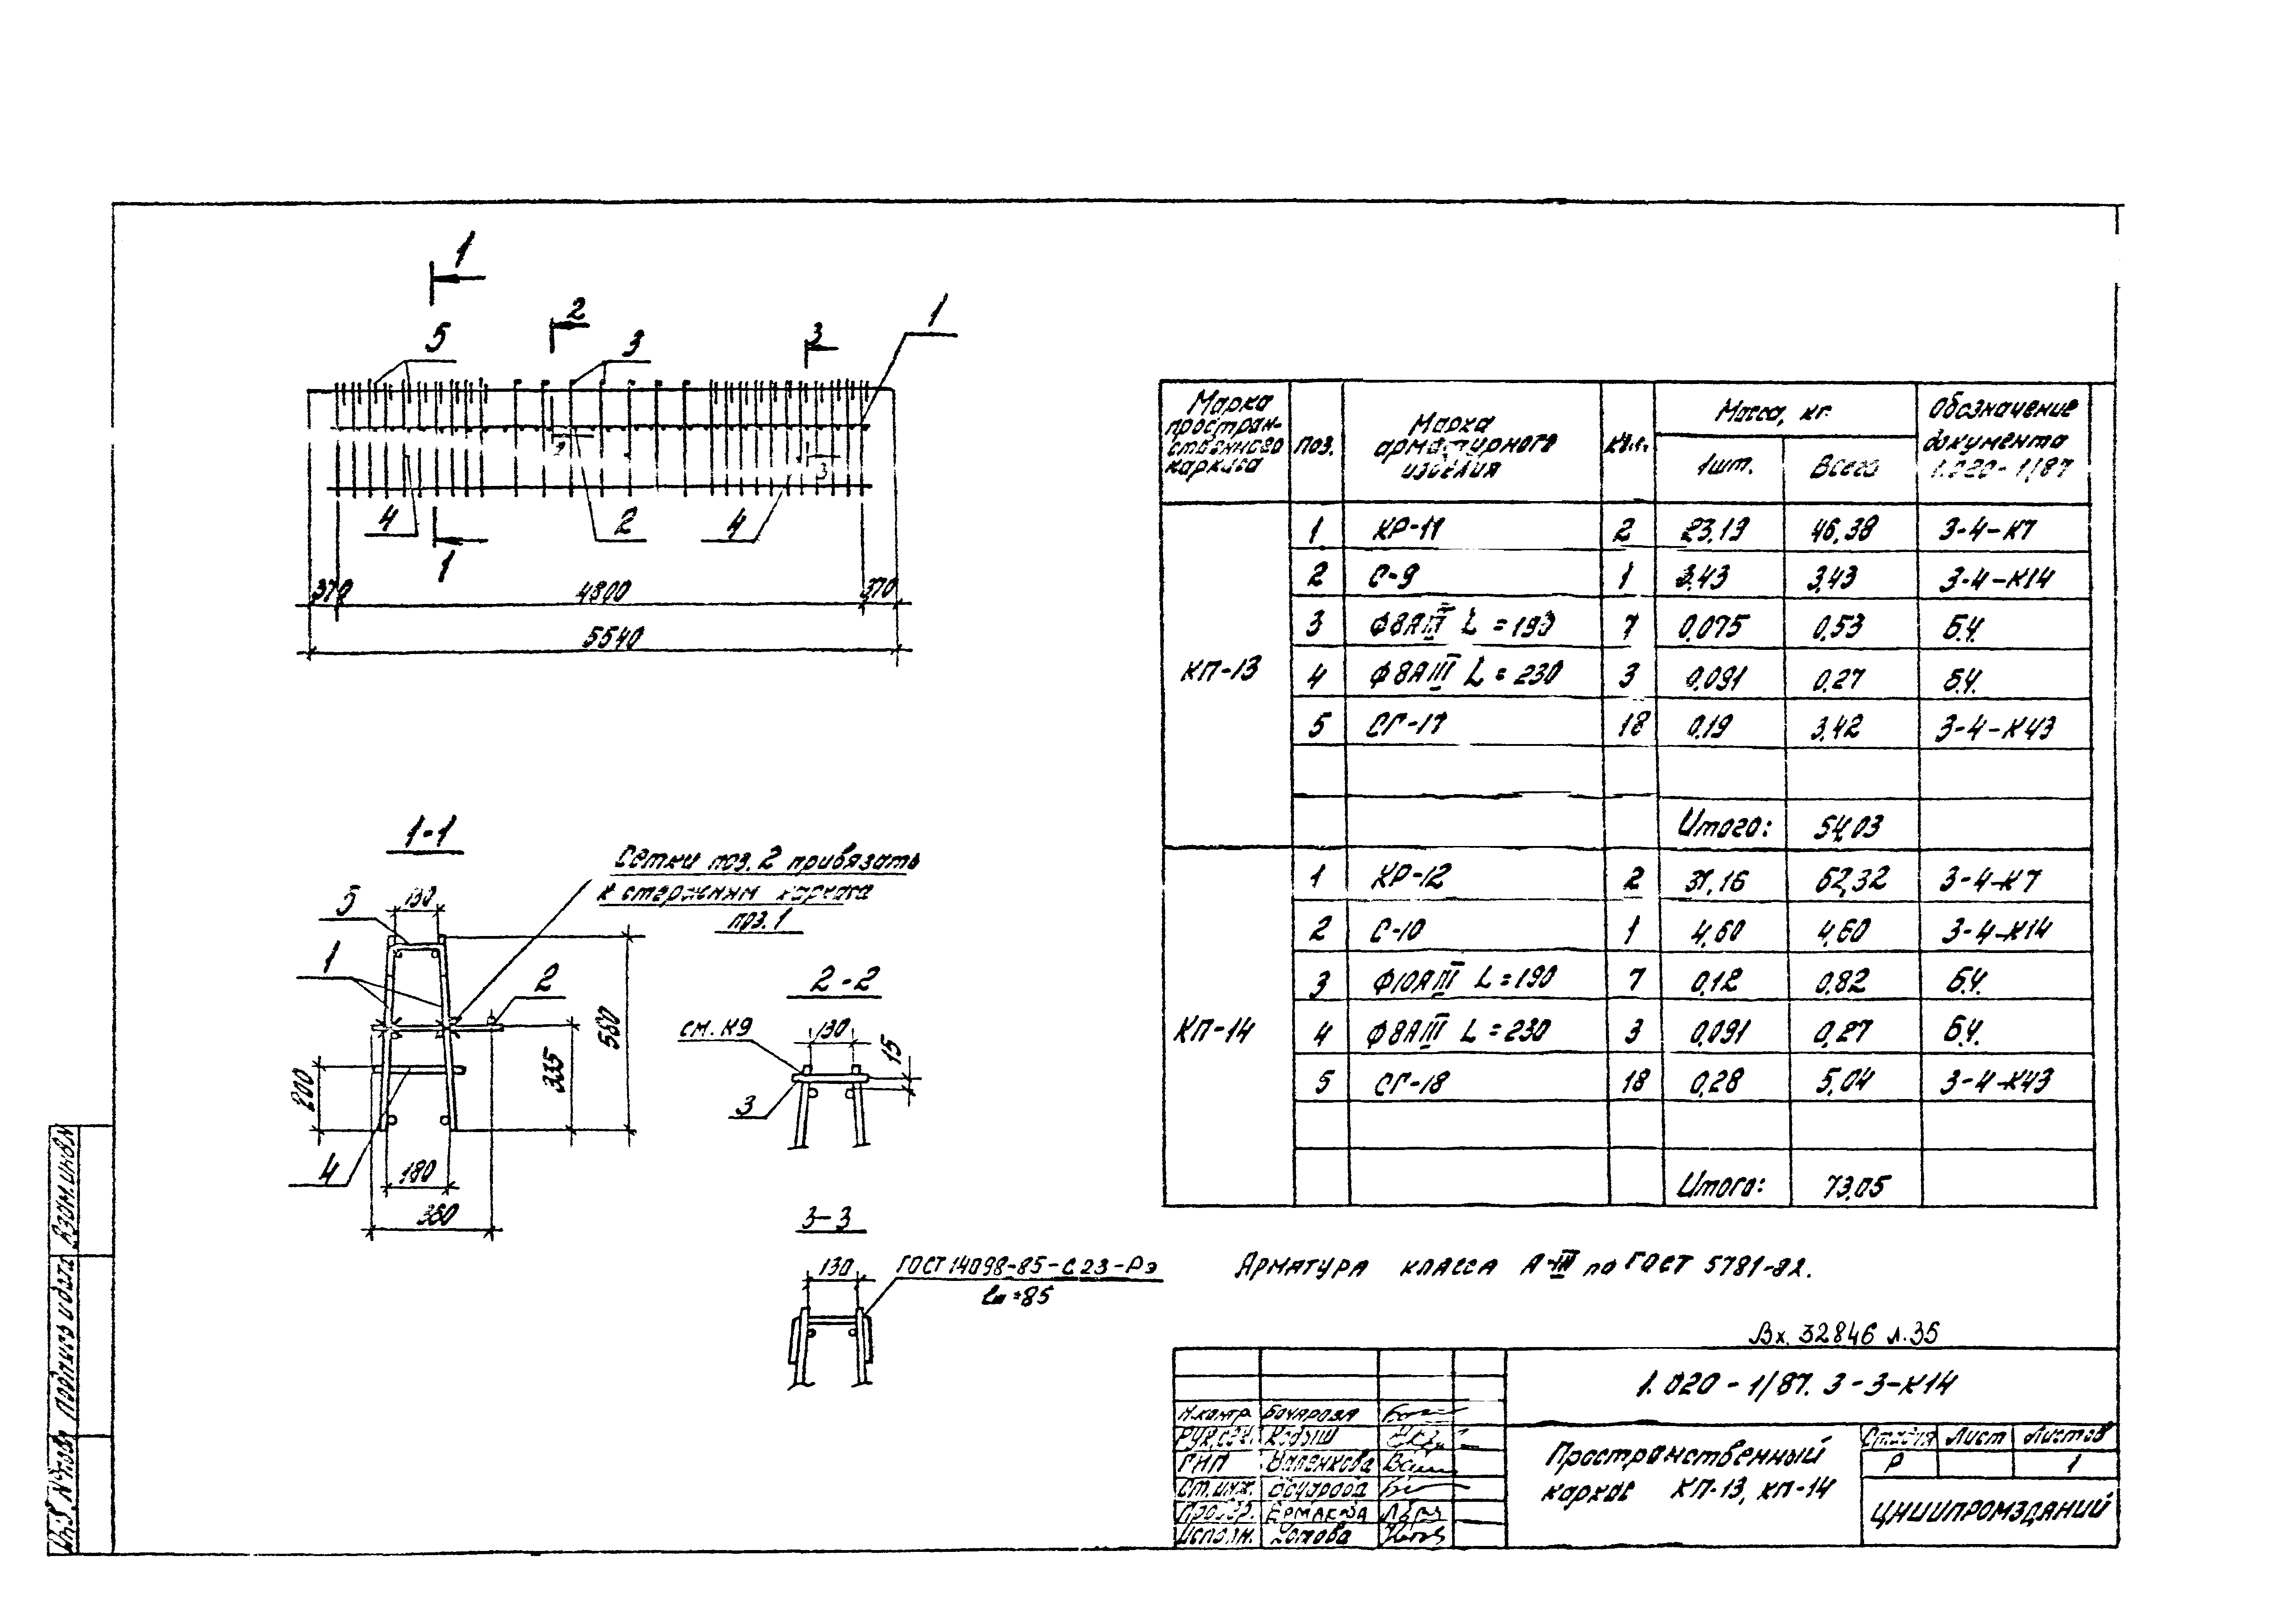 1
2
1
5
3
3
2
3
4
2
4
1
370
4800
370
5540
1-1
Сетки поз. 2 привязать
к стержням каркаса
поз. 1
5
130
1
2
560
335
200
4
180
360
2-2
см. К9
130
15
3
3-3
130
ГОСТ 14098-85-С23-Рэ
lш=85
Марка пространственного каркаса
поз.
Марка арматурного изделия
Кол.
Масса, кг.
1шт.
Всего
Обозначение документа 1.020-1/87
КП-13
1 КР-11 2 23,19 46,38 3-4-К7
2 С-9 1 3,43 3,43 3-4-К14
3 Ф8АIII L=190 7 0,075 0,53 б.ч.
4 Ф8АIII L=230 3 0,091 0,27 б.ч.
5 СГ-17 18 0,19 3,42 3-4-К43
Итого: 54,03
КП-14
1 КР-12 2 31,16 62,32 3-4-К7
2 С-10 1 4,60 4,60 3-4-К14
3 Ф10АIII L=190 7 0,12 0,82 б.ч.
4 Ф8АIII L=230 3 0,091 0,27 б.ч.
5 СГ-18 18 0,28 5,04 3-4-К43
Итого: 73,05
Арматура класса А-III по ГОСТ 5781-82.
Вх. 32846 л.35
1.020-1/87. 3-3-К14
Н.контр. Бочарова
Рук.сек. Кодыш
ГИП
Ст.инж. Бочарова
Провер. Ермакова
Исполн.
Пространственный
каркас КП-13, КП-14
Стадия Лист Листов
Р 1
ЦНИИПРОМЗДАНИЙ
Взам.инв.N
Подпись и дата
Инв. № подл